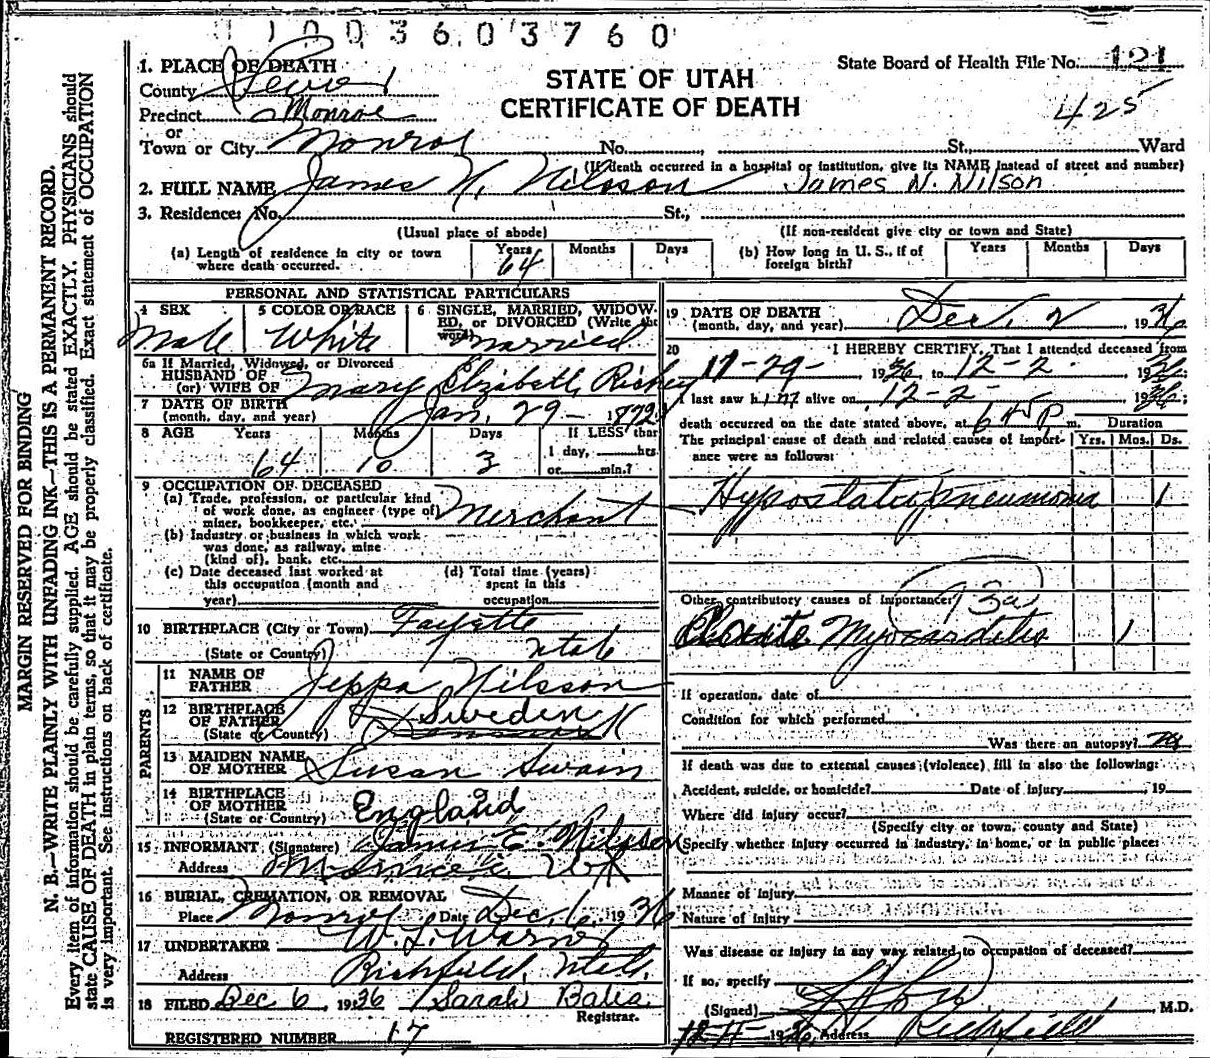 1003603760
1. PLACE OF DEATH
County Sevier
State Board of Health File No. 121
STATE OF UTAH
CERTIFICATE OF DEATH
425
Precinct Monroe
or
Town or City Monroe No. , St., Ward
(If death occurred in a hospital or institution, give its NAME instead of street and number)
2. FULL NAME James N. Nilsson James N. Nilson
3. Residence: No. St.,
(Usual place of abode) (If non-resident give city or town and State)
(a) Length of residence in city or town where death occurred. Years 64 Months Days
(b) How long in U. S., if of foreign birth? Years Months Days
PERSONAL AND STATISTICAL PARTICULARS
4 SEX Male
5 COLOR OR RACE White
6 SINGLE, MARRIED, WIDOW-
ED, or DIVORCED (Write the
word) Married
6a If Married, Widowed, or Divorced
HUSBAND OF
(or) WIFE OF Mary Elizabeth Richey
7 DATE OF BIRTH
(month, day, and year) Jan. 29 - 1872
8 AGE Years 64 Months 10 Days 3
If LESS than
1 day, hrs.
or min.?
9 OCCUPATION OF DECEASED
(a) Trade, profession, or particular kind
of work done, as engineer (type of)
miner, bookkeeper, etc. Merchant
(b) Industry or business in which work
was done, as railway, mine
(kind of), bank, etc.
(c) Date deceased last worked at
this occupation (month and
year)
(d) Total time (years)
spent in this
occupation
10 BIRTHPLACE (City or Town) Fayette
(State or Country) Utah
PARENTS
11 NAME OF
FATHER Jeppa Nilsson
12 BIRTHPLACE
OF FATHER Sweden
(State or Country) Denmark
13 MAIDEN NAME
OF MOTHER Susan Swain
14 BIRTHPLACE
OF MOTHER
(State or Country) England
15 INFORMANT (Signature) James E. Nilsson
Address
16 BURIAL, CREMATION, OR REMOVAL
Place Monroe Date Dec. 6. 1936
17 UNDERTAKER W. L. Warner
Address Richfield, Utah.
18 FILED Dec 6 , 1936 Sarah Bales
Registrar.
REGISTERED NUMBER 17
19 DATE OF DEATH
(month, day, and year) Dec. 2 1936
20 I HEREBY CERTIFY, That I attended deceased from
11-29- 1936, to 12-2- 1936
I last saw him alive on 12-2- 1936;
death occurred on the date stated above, at 645P m. Duration
The principal cause of death and related causes of import-
ance were as follows: Yrs. Mos. Ds.
Hypostatic pneumonia 1
93a
Other contributory causes of importance:
Myocarditis 1
If operation, date of
Condition for which performed
Was there an autopsy? no
If death was due to external causes (violence) fill in also the following:
Accident, suicide, or homicide? Date of injury 19
Where did injury occur?
(Specify city or town, county and State)
Specify whether injury occurred in industry, in home, or in public place:
Manner of injury
Nature of injury
Was disease or injury in any way related to occupation of deceased?
If so, specify
(Signed) M.D.
1936 Address Richfield
MARGIN RESERVED FOR BINDING
N. B.—WRITE PLAINLY WITH UNFADING INK—THIS IS A PERMANENT RECORD.
Every item of information should be carefully supplied. AGE should be stated EXACTLY. PHYSICIANS should
state CAUSE OF DEATH in plain terms, so that it may be properly classified. Exact statement of OCCUPATION
is very important. See instructions on back of certificate.